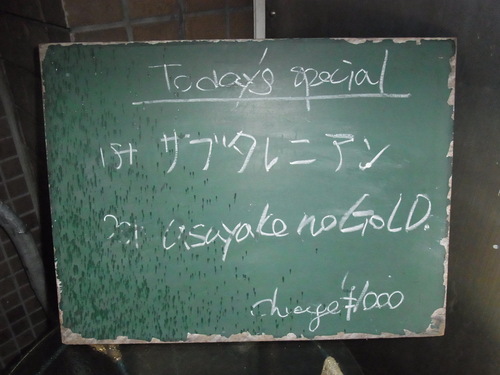 Today's special
1st サブタレニアン
2nd asayake no GOLD.
charge ¥1000